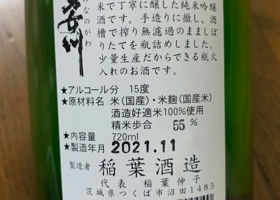 男女川
みなのがわ
米で丁寧に醸した純米吟醸
酒です。手造りに徹し、酒
槽で搾り無濾過のままぼり
たてを瓶詰めしました。
少量生産だからできる瓶火
入れのお酒です。
★アルコール分 15度
★原材料名 米(国産)・米麹(国産米)
酒造好適米100%使用
精米歩合 55 %
★内容量 720ml
★製造年月 2021.11
製造者 稲葉酒造
代表 稲葉伸子
茨城県つくば市沼田1485